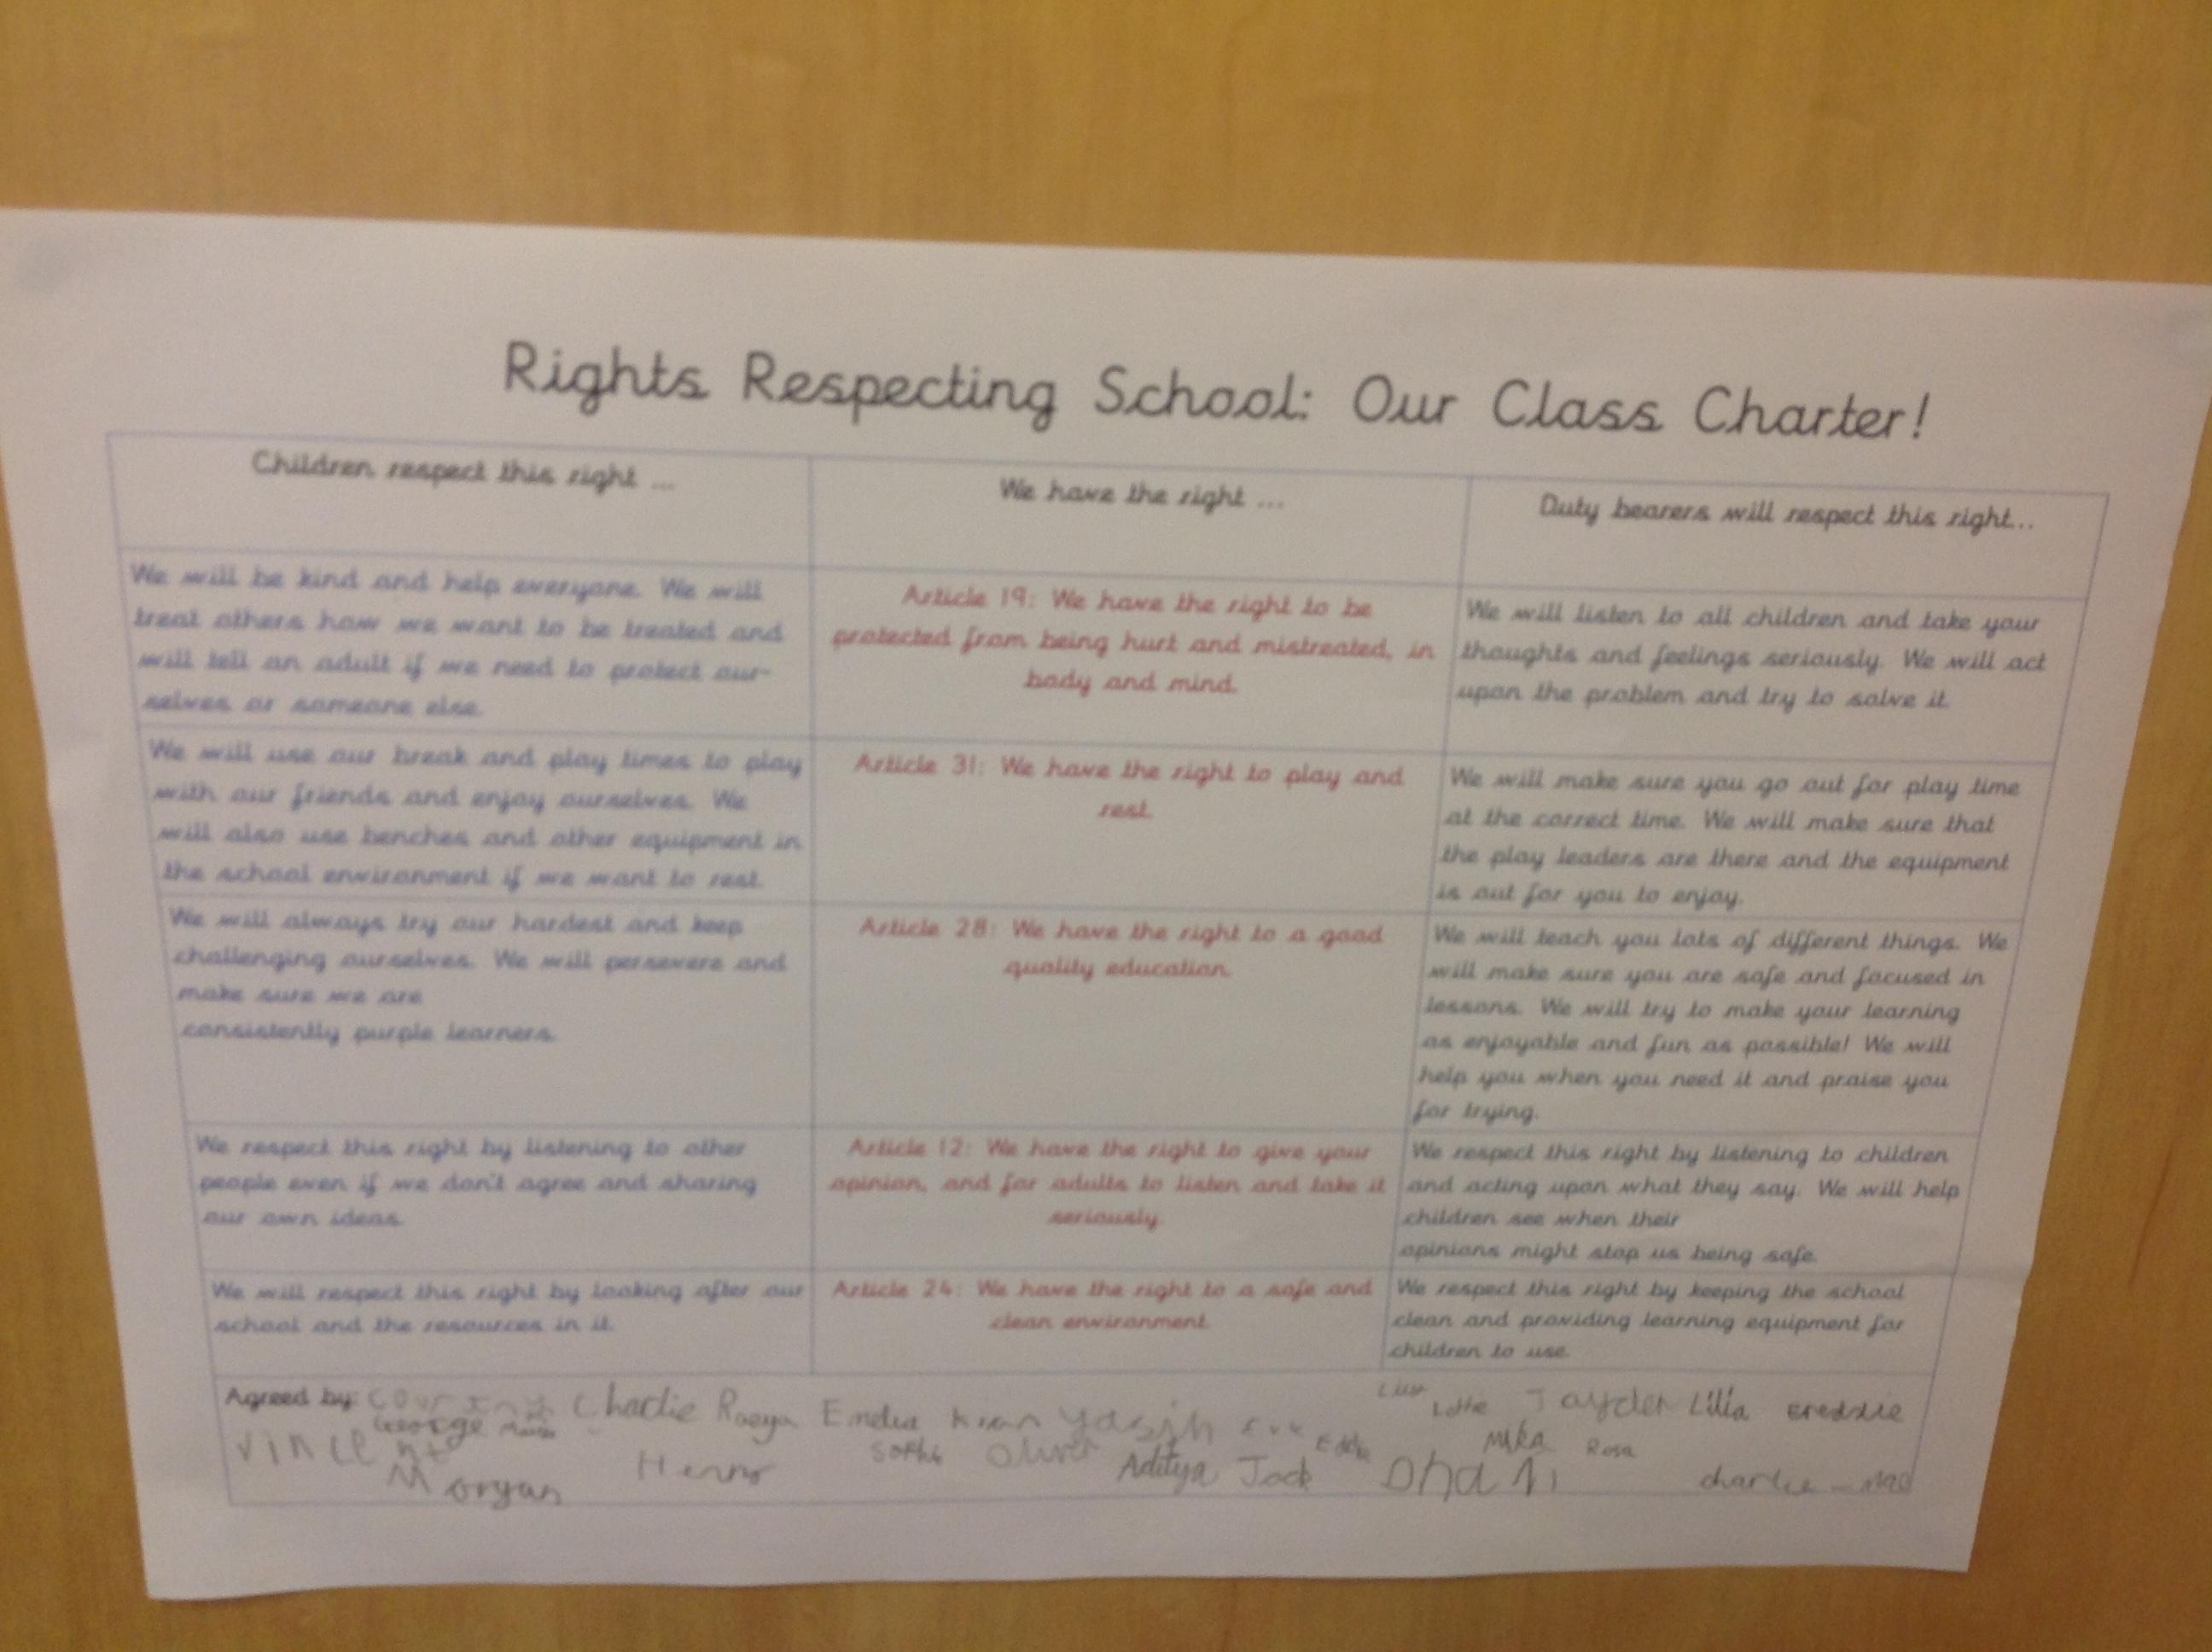 Rights Respecting School: Our Class Charter!
Children respect this right ...
We have the right ...
Duty bearers will respect this right...
We will be kind and help everyone. We will
treat others how we want to be treated and
will tell an adult if we need to protect our-
selves or someone else.
Article 19: We have the right to be
protected from being hurt and mistreated, in
body and mind.
We will listen to all children and take your
thoughts and feelings seriously. We will act
upon the problem and try to solve it.
We will use our break and play times to play
with our friends and enjoy ourselves. We
will also use benches and other equipment in
the school environment if we want to rest.
Article 31: We have the right to play and
rest.
We will make sure you go out for play time
at the correct time. We will make sure that
the play leaders are there and the equipment
is out for you to enjoy.
We will always try our hardest and keep
challenging ourselves. We will persevere and
make sure we are
consistently purple learners.
Article 28: We have the right to a good
quality education.
We will teach you lots of different things. We
will make sure you are safe and focused in
lessons. We will try to make your learning
as enjoyable and fun as possible! We will
help you when you need it and praise you
for trying.
We respect this right by listening to other
people even if we don't agree and sharing
our own ideas.
Article 12: We have the right to give your
opinion, and for adults to listen and take it
seriously.
We respect this right by listening to children
and acting upon what they say. We will help
children see when their
opinions might stop us being safe.
We will respect this right by looking after our
school and the resources in it.
Article 24: We have the right to a safe and
clean environment.
We respect this right by keeping the school
clean and providing learning equipment for
children to use.
Agreed by: Charlie Raeya Emelia Kian Yasin Lottie Jayden Lilia Freddie
George Vince Sophie Oliver Eddie Mika Rosa
Morgan Henry Aditya Jack Dhani Charlie-Mae